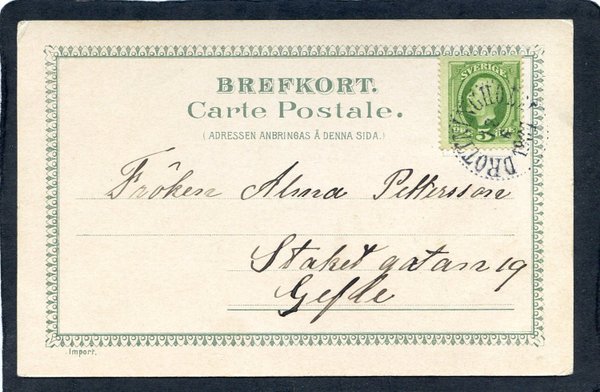 BREFKORT.
Carte Postale.
(ADRESSEN ANBRINGAS Å DENNA SIDA.)
SVERIGE
5 ÖRE
Fröken Alma Pettersson
Staketgatan 19
Gefle
Import.